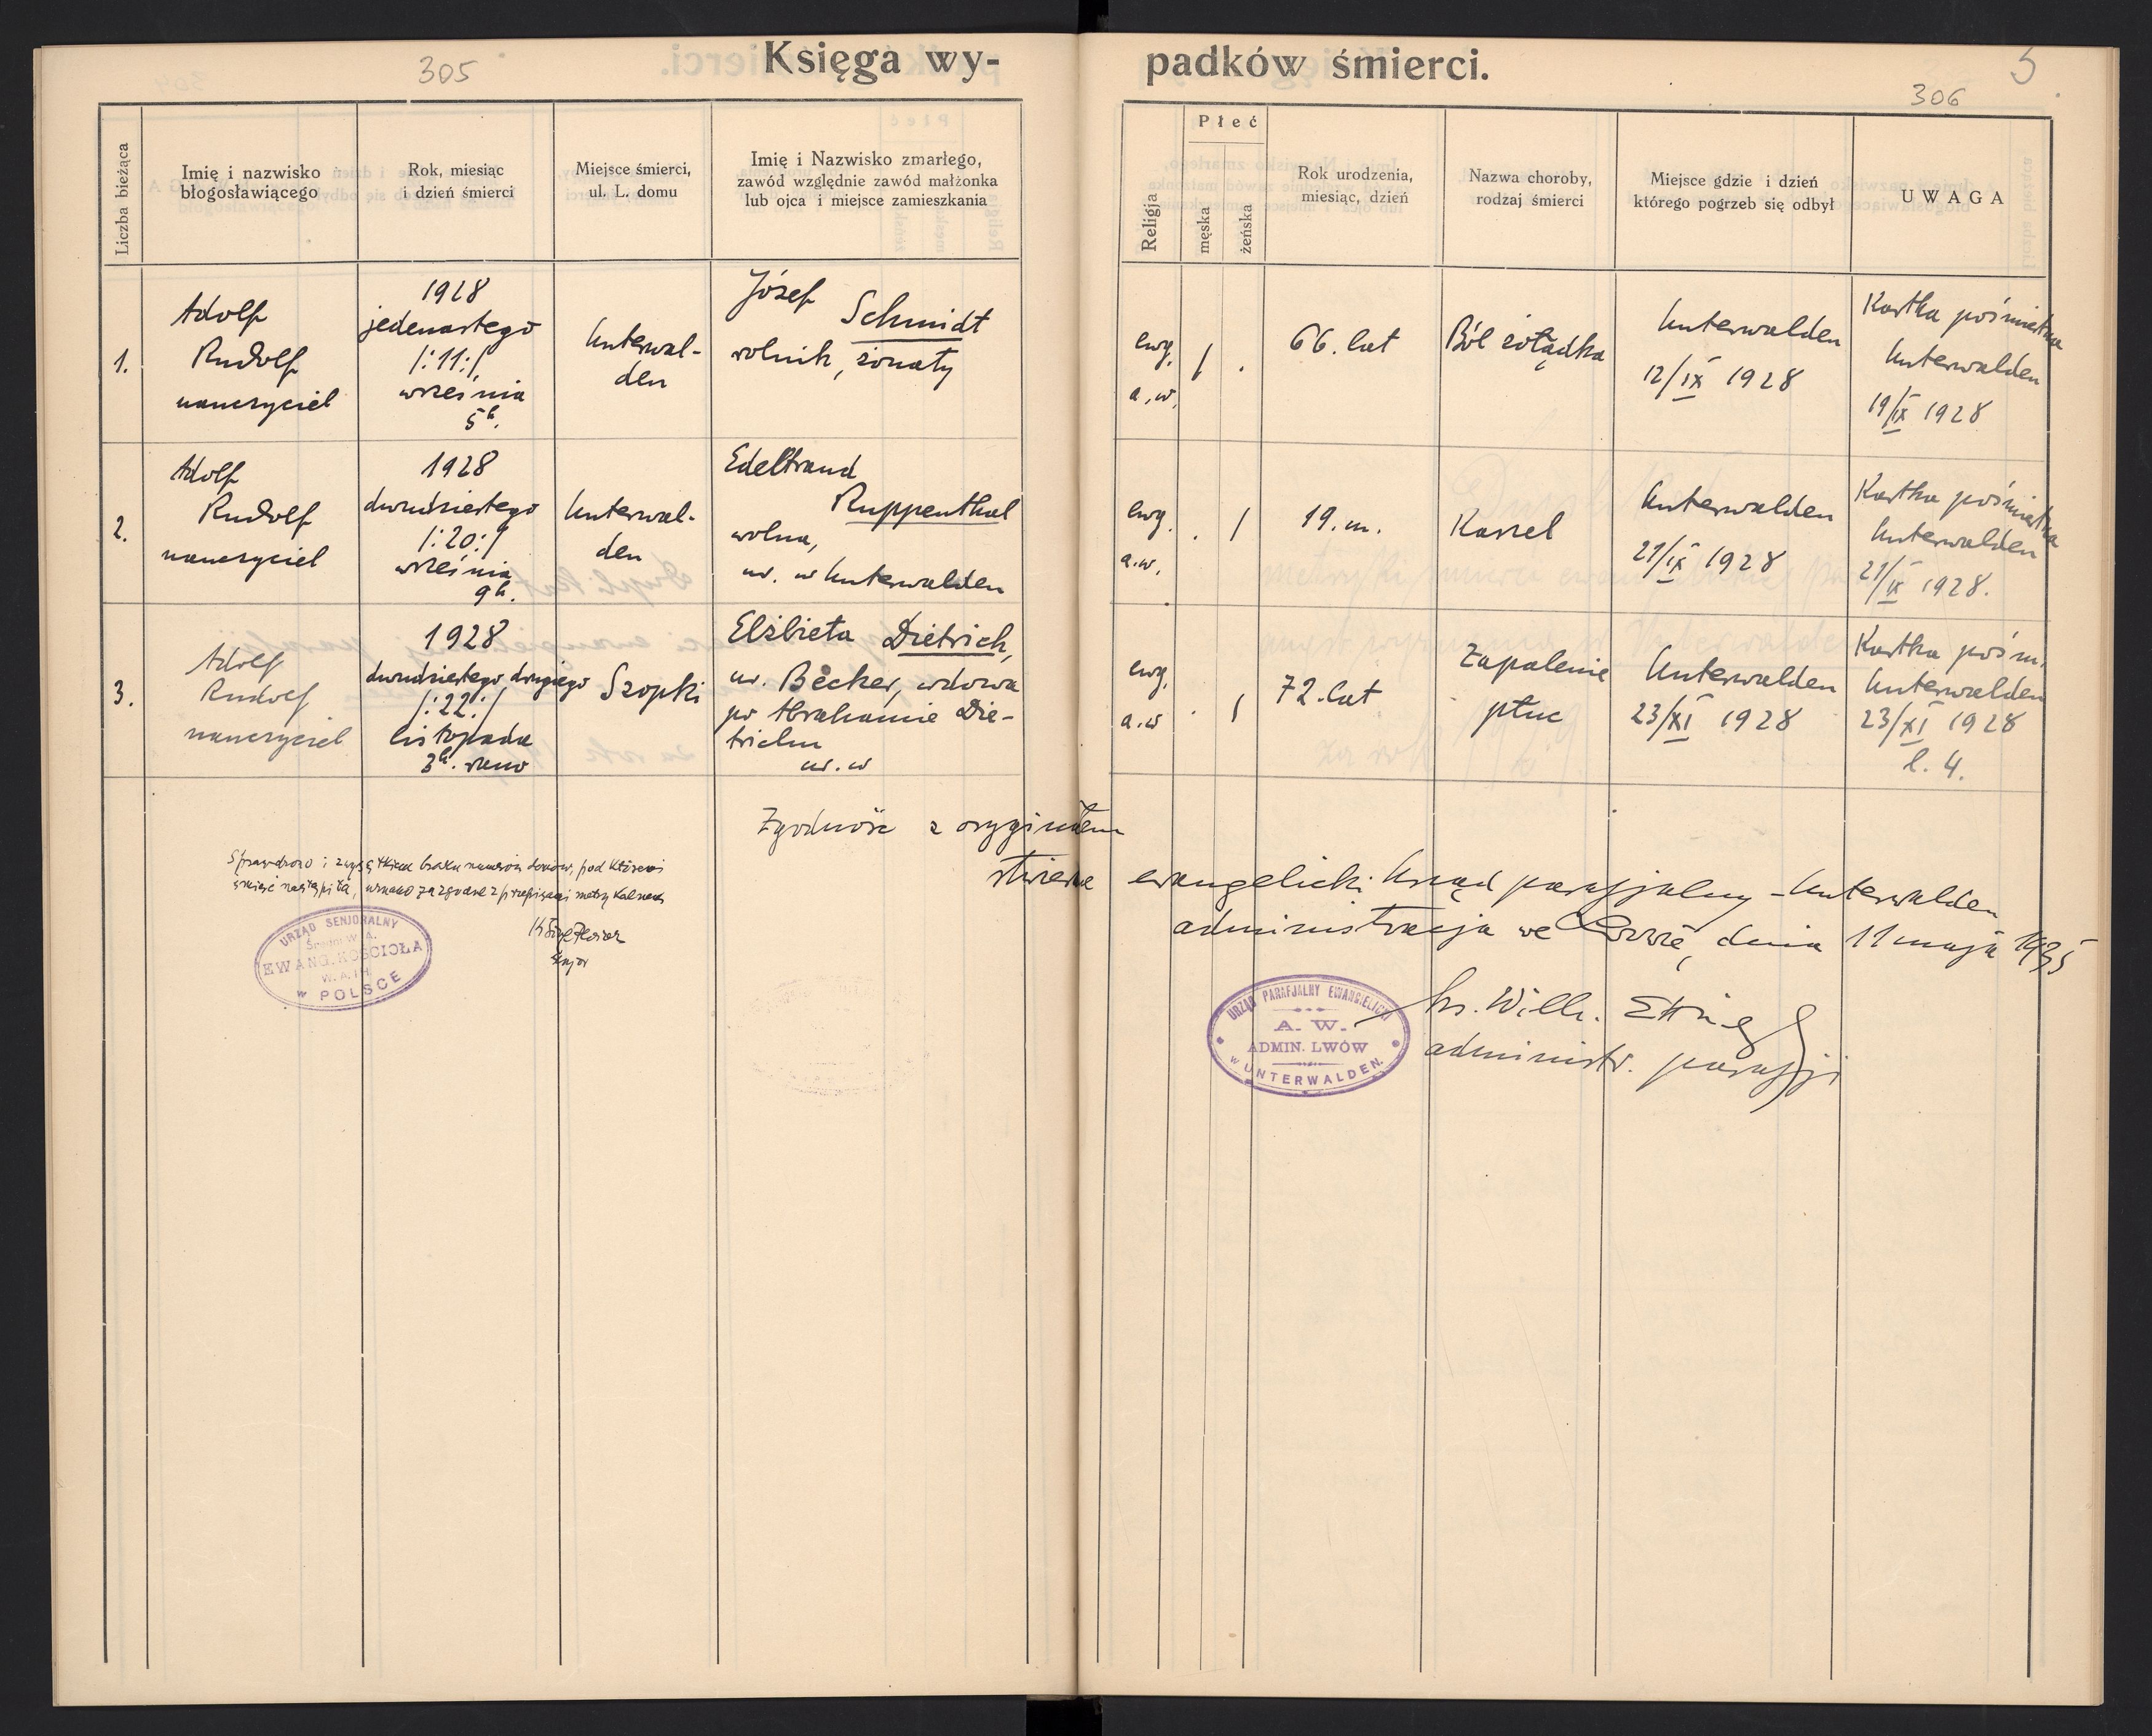 305
Księga wy-
padków śmierci.
5
306
Liczba bieżąca
Imię i nazwisko
błogosławiącego
Rok, miesiąc
i dzień śmierci
Miejsce śmierci,
ul. L. domu
Imię i Nazwisko zmarłego,
zawód względnie zawód małżonka
lub ojca i miejsce zamieszkania
Religja
Płeć
męska
żeńska
Rok urodzenia,
miesiąc, dzień
Nazwa choroby,
rodzaj śmierci
Miejsce gdzie i dzień
którego pogrzeb się odbył
UWAGA
1.
Adolf
Rudolf
nauczyciel
1928
jedenastego
/:11:/
września
5h.
Unterwal-
den
Józef
Schmidt
rolnik, żonaty
ewg.
a.w.
/
.
66. lat
Ból żołądka
Unterwalden
12/IX 1928
Kartka pośmiertna
Unterwalden
19/IX 1928
2.
Adolf
Rudolf
nauczyciel
1928
dwudziestego
/:20:/
września
9h.
Unterwal-
den
Edeltraud
Ruppenthal
wolna,
ur. w Unterwalden
ewg.
a.w.
.
/
19. m.
Kaszel
Unterwalden
21/IX 1928
Kartka pośmiertna
Unterwalden
21/IX 1928.
3.
Adolf
Rudolf
nauczyciel
1928
dwudziestego drugiego
/:22:/
listopada
3h. rano
Szopki
Elżbieta Dietrich,
ur. Becker, wdowa
po Abrahamie Die-
trichu
ur. w
ewg.
a.w
.
/
72. lat
Zapalenie
płuc
Unterwalden
23/XI 1928
Kartka pośm.
Unterwalden
23/XI 1928
l. 4.
Zgodność z oryginałem
stwierdza ewangelicki Urząd parafjalny - Unterwalden
administracja we Lwowie, dnia 11 maja 1935
Sprawdzono i z wyjątkiem braku numerów domów, pod któremi
śmierć nastąpiła, uznano za zgodne z przepisami metrykalnemi
Senjor
URZĄD SENJORALNY
EWANG. KOŚCIOŁA
W POLSCE
URZĄD PARAFJALNY EWANGIELICKI
A. W.
ADMIN. LWÓW
W UNTERWALDEN.
ks. Wilh. Ettinger
administr. parafji